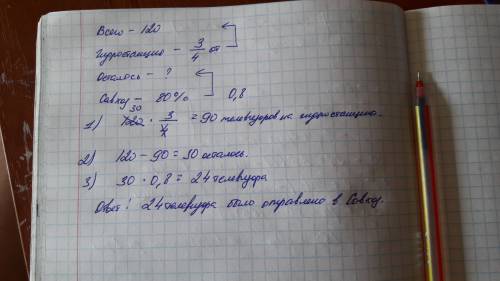 Всего - 120
Гидростанцию - 3/4 от
Осталось - ?
Совхоз - 80% 0,8
30
1) 120 · 3/4 = 90 телевизоров на гидростанцию.
2) 120 - 90 = 30 осталось.
3) 30 · 0,8 = 24 телевизора
Ответ: 24 телевизора было отправлено в Совхоз.